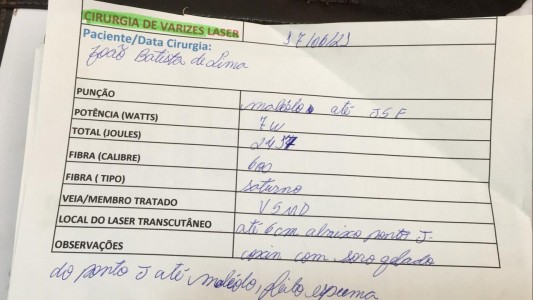 CIRURGIA DE VARIZES LASER 17/06/21
Paciente/Data Cirurgia:
João Batista de Lima
PUNÇÃO maléolo até JSF
POTÊNCIA (WATTS) 7W
TOTAL (JOULES)
FIBRA (CALIBRE) 600
FIBRA ( TIPO) saturno
VEIA/MEMBRO TRATADO VSMD
LOCAL DO LASER TRANSCUTÂNEO até 6cm abaixo ponto J.
OBSERVAÇÕES com soro gelado
do ponto J até maléolo, feito espuma